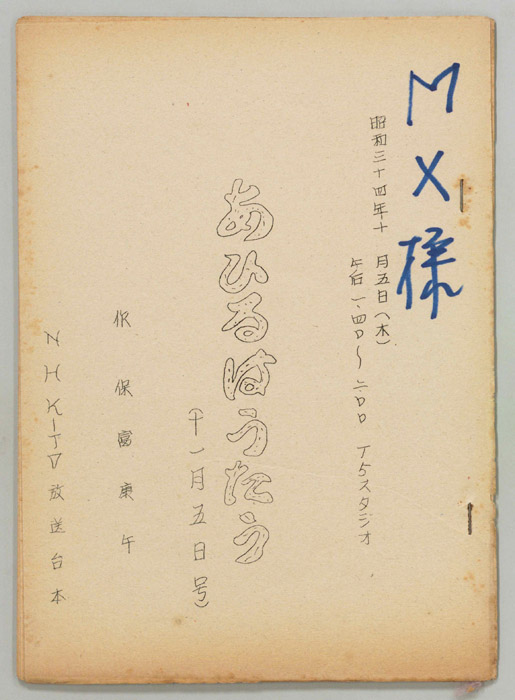 MX様
昭和三十四年十　月五日(木)
午后一、四〇〜二、〇〇　T5スタジオ
あひるはうたう
(十一月五日号)
作　保富康午
NHK-TV放送台本